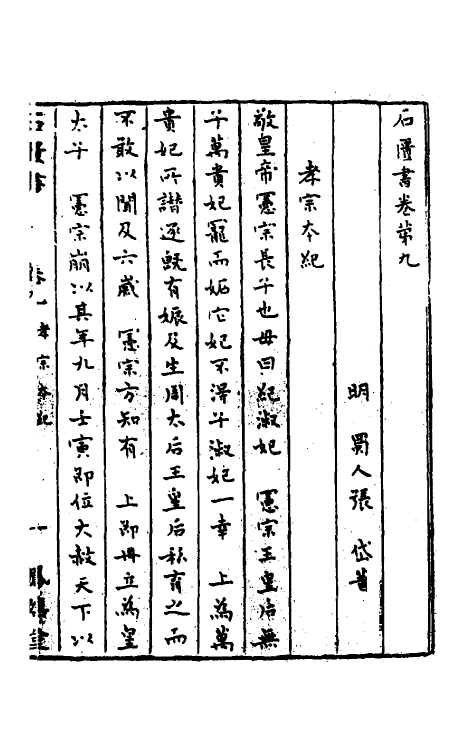 石匱書卷第九
明　蜀人張　岱著
孝宗本紀
敬皇帝憲宗長子也母曰紀淑妃　憲宗王皇后無
子萬貴妃寵而妬它妃不得子淑妃一幸　上為萬
貴妃所譖逐既有娠及生周太后王皇后秘育之而
不敢以聞及六歲　憲宗方知有　上即冊立為皇
太子　憲宗崩以其年九月壬寅即位大赦天下以
石匱書　卷九　孝宗本紀　一　鳳嬉堂